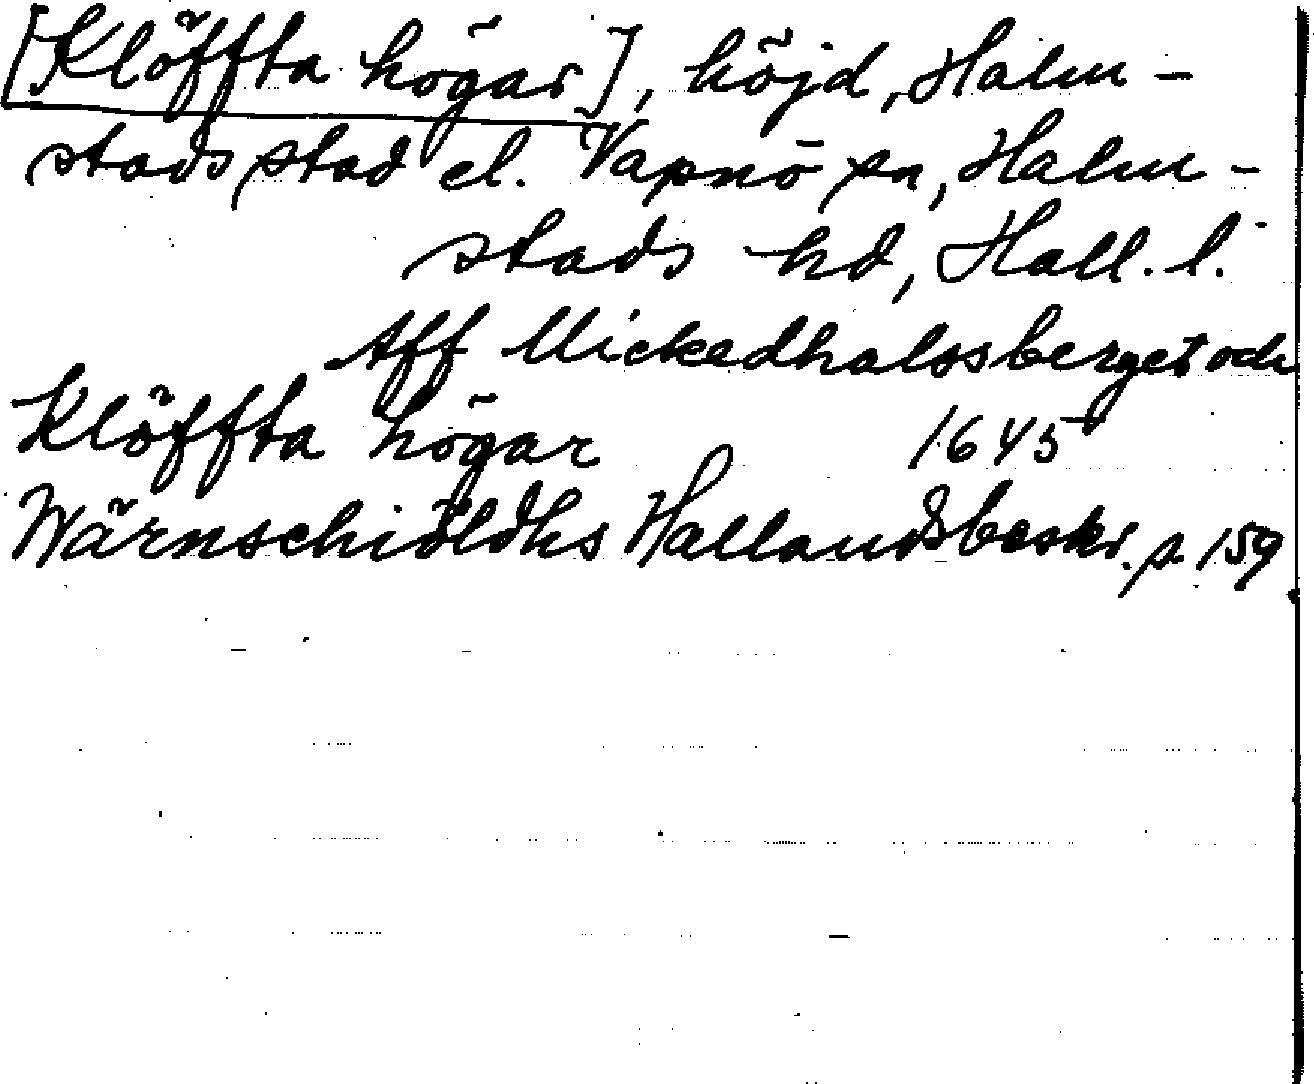 [Klöffta högar], höjd, Halm-
stads stad el. Vapnö sn, Halm-
stads hd, Hall. l.
Aff Mickedhalssberget och
Klöffta högar 1645
Wärnschiöldhs Hallandsbeskr. s. 159